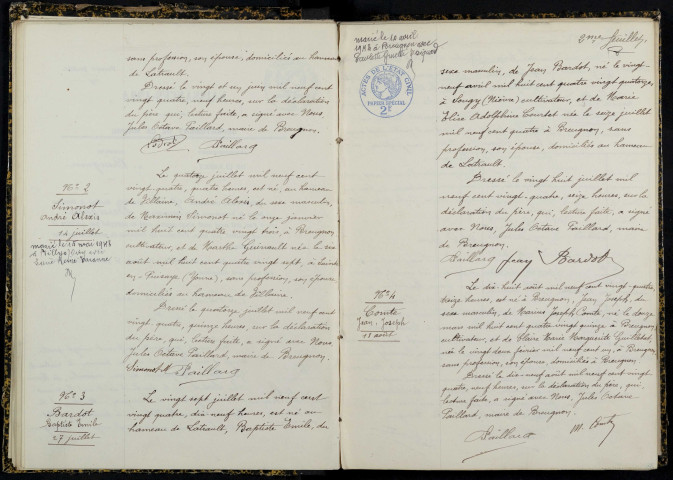 sans profession, son épouse, domiciliés au hameau
de Latrault.
Dressé le vingt et un juin mil neuf cent
vingt quatre, neuf heures, sur la déclaration
du père qui, lecture faite, a signé avec Nous,
Jules Octave Paillard, maire de Breugnon.
Paillard
N° 2
Simonot
André Aloïs
14 juillet
marié le
Le quatorze juillet mil neuf cent
vingt quatre, quatre heures, est né, au hameau
de Villaine, André Aloïs, du sexe masculin,
de Simonot né le onze janvier
mil huit cent quatre vingt trois, à Breugnon
cultivateur, et de Marthe née le
août mil huit cent quatre vingt sept, à
en Puisaye (Yonne), sans profession, son épouse
domiciliés au hameau de Villaine.
Dressé le quatorze juillet mil neuf cent
vingt quatre, quinze heures, sur la déclaration
du père, qui, lecture faite, a signé avec Nous
Jules Octave Paillard, maire de Breugnon.
Simonot M Paillard
N° 3
Bardot
Baptiste Emile
27 juillet
Le vingt sept juillet mil neuf cent
vingt quatre, dix-neuf heures, est né au
hameau de Latrault, Baptiste Emile, du
marié le 10 avril
à Breugnon avec
2me feuillet
ACTES DE L'ETAT CIVIL
PAPIER SPÉCIAL
2F
sexe masculin, de Jean Bardot, né le vingt-
neuf avril mil huit cent quatre vingt quatorze,
à (Nièvre) cultivateur, et de Marie
Elise Adolphine Tourlot née le seize juillet
mil neuf cent quatre à Breugnon, sans
profession, son épouse, domiciliés au hameau
de Latrault.
Dressé le vingt huit juillet mil
neuf cent vingt-quatre, seize heures, sur la
déclaration du père, qui, lecture faite, a signé
avec Nous, Jules Octave Paillard, maire
de Breugnon.
Paillard Jean Bardot
N° 4
Comte
Jean, Joseph
18 août
Le dix-huit août mil neuf cent vingt-quatre,
seize heures, est né à Breugnon, Jean Joseph, du
sexe masculin, de Joseph Comte, né le douze
mars mil huit cent quatre-vingt quinze à Breugnon,
cultivateur, et de Claire Marie Marguerite Guillelot,
née le vingt deux février mil neuf cent un, à Breugnon,
sans profession, son épouse, domiciliés à Breugnon
Dressé le dix-neuf août mil neuf cent vingt
quatre, neuf heures, sur la déclaration du père, qui,
lecture faite, a signé avec Nous, Jules Octave
Paillard, maire de Breugnon.
Paillard M. Comte